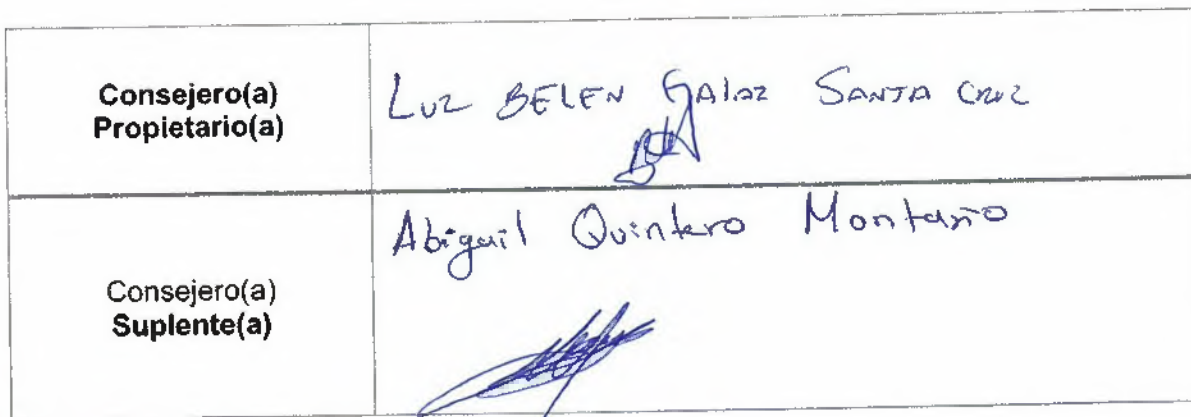 Consejero(a)
Propietario(a)
LUZ BELEN GALAZ SANTA CRUZ
Consejero(a)
Suplente(a)
Abigail Quintero Montaño